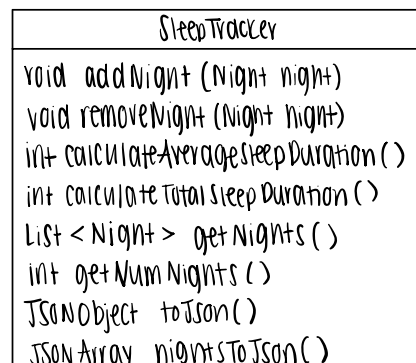 SleepTracker
void addNight (Night night)
void removeNight (Night night)
int calculateAverageSleepDuration()
int calculateTotalSleepDuration()
List <Night> getNights()
int getNumNights()
JSONObject toJson()
JSONArray nightsToJson()